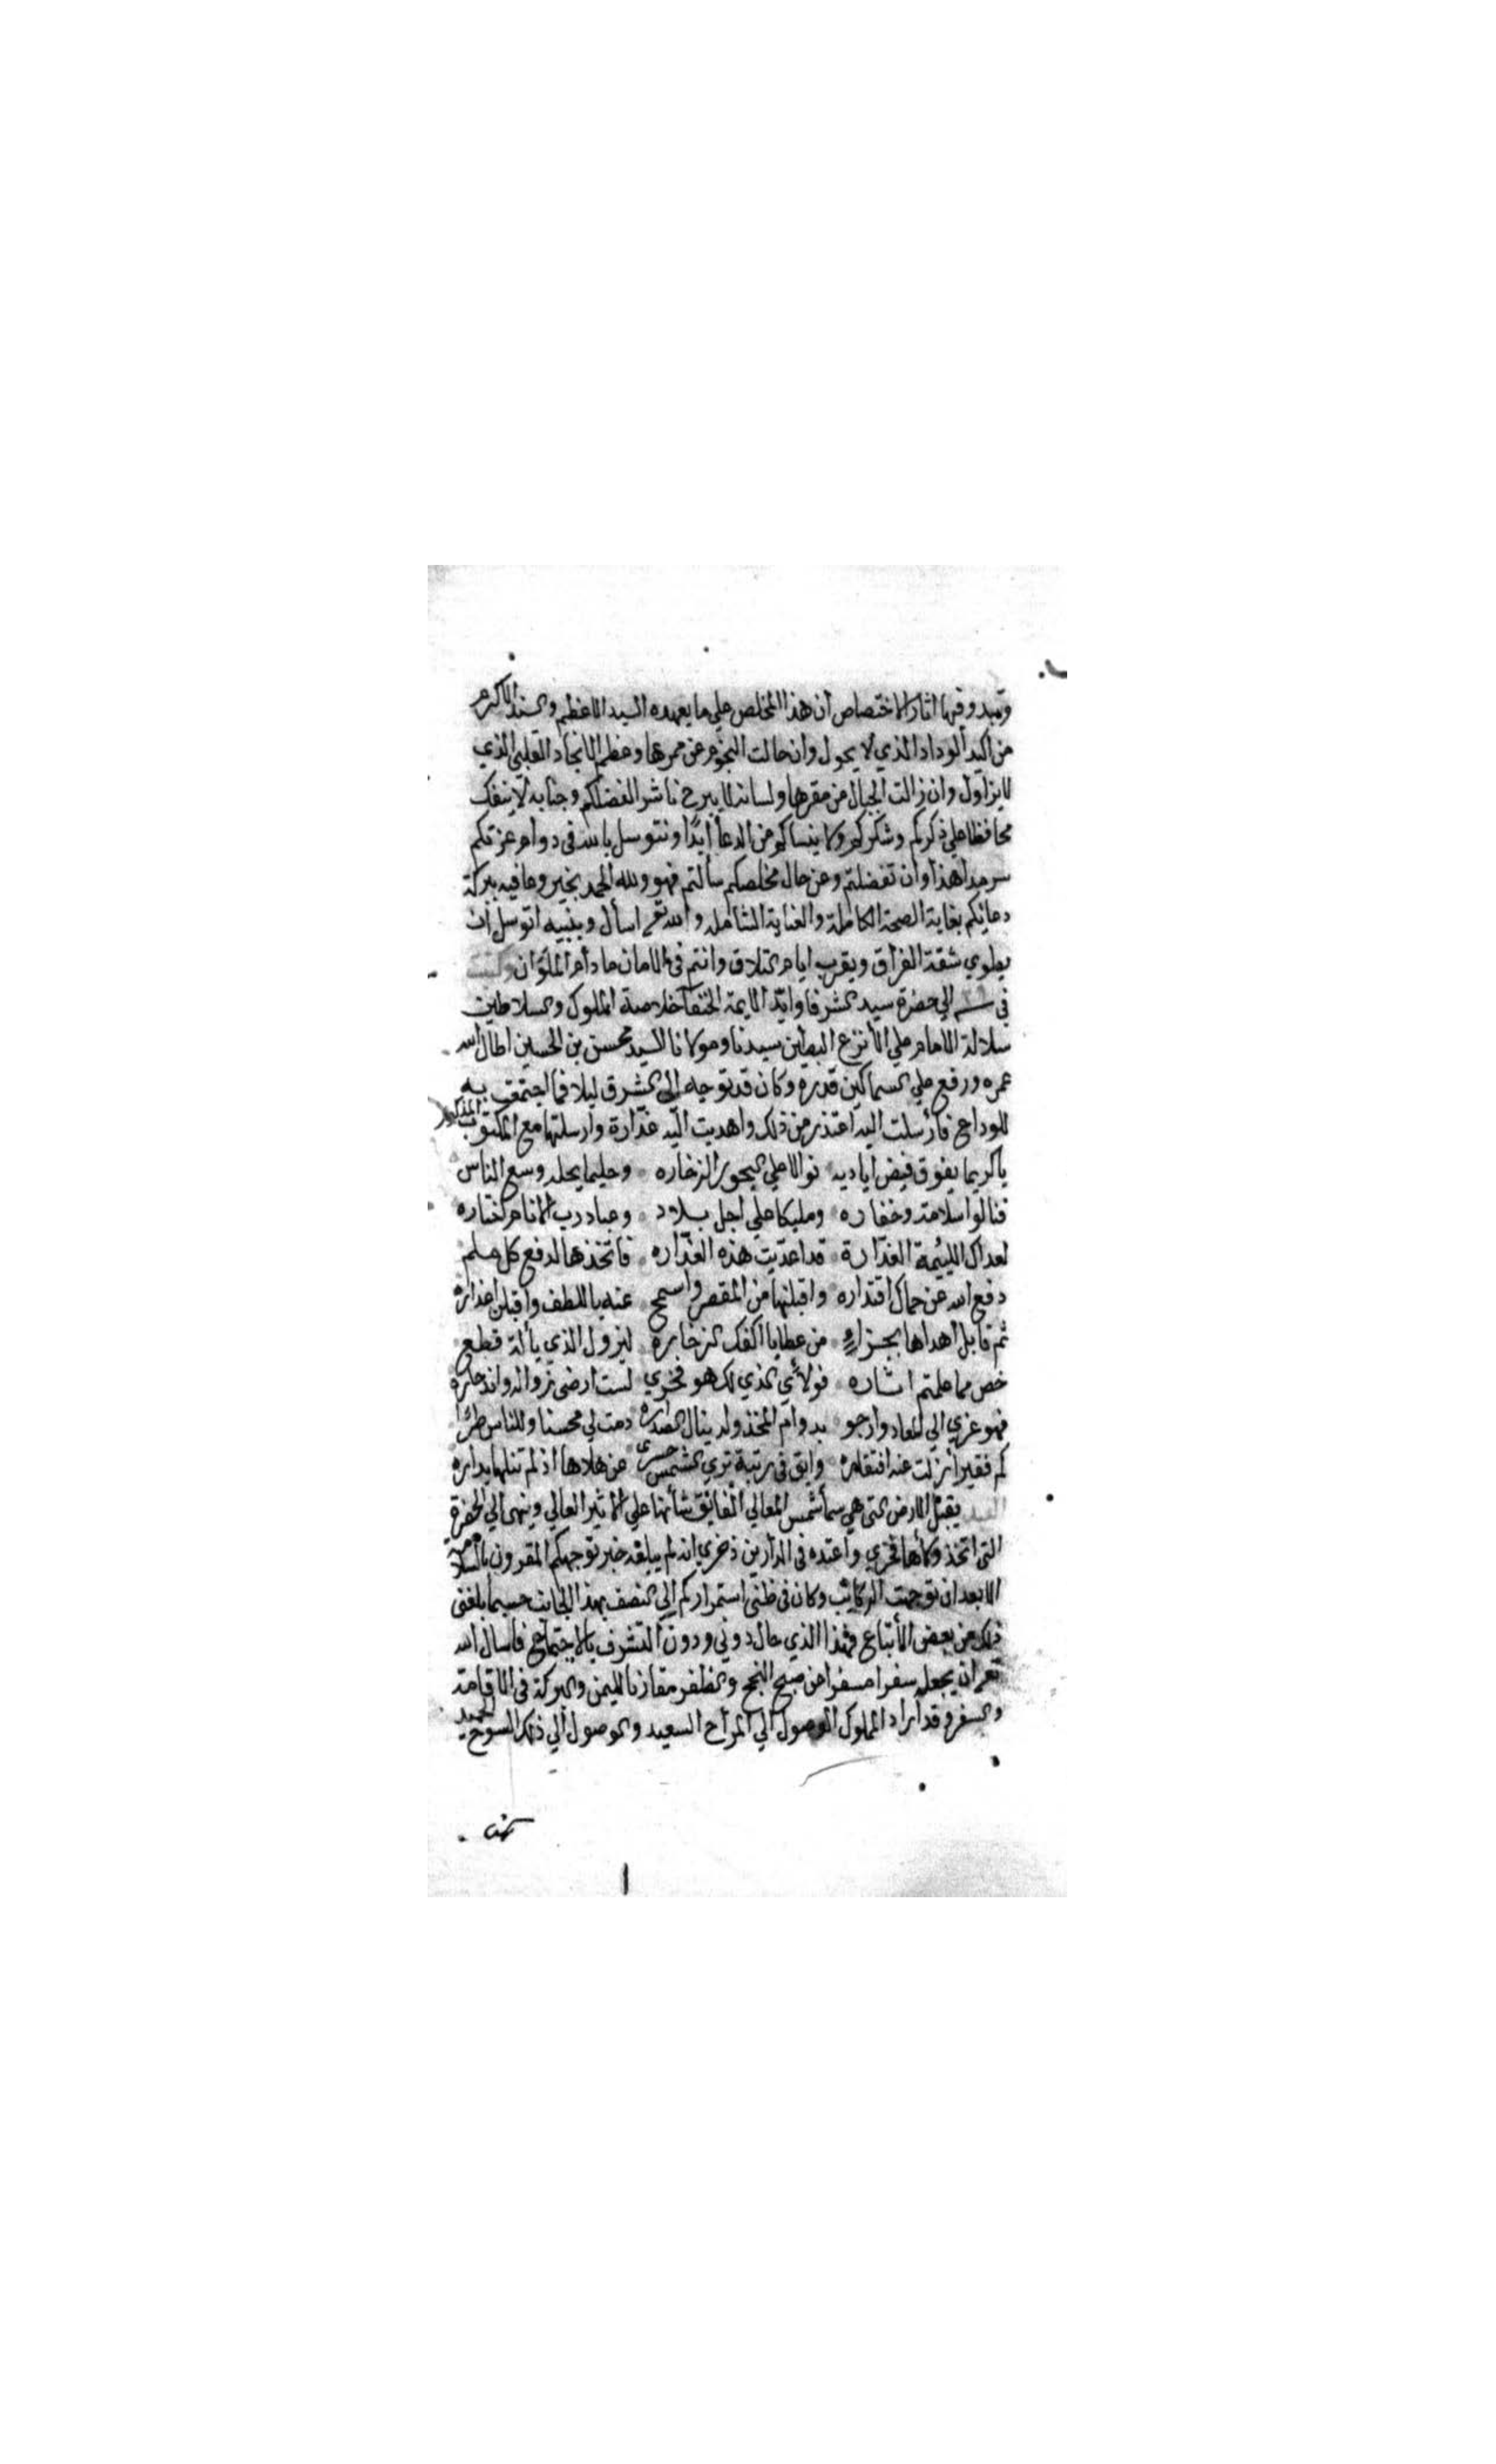 وتبدو فيها اثار الاختصاص ان هذا المخلص علي ما يعهده السيد الاعظم والسند الاكرم
من اكيد الوداد الذي لا يحول وان حالت النجوم عن ممرها وعظيم الاتحاد القلبي الذي
لا يزاول وان زالت الجبال من مقرها ولسانه لا يبرح ناشر الفضلكم وجنابه لا ينفك
محافظا علي ذكركم وشكركم ولا ينساكم من الدعا ابدا ونتوسل بالله في دوام عزتكم
سرمدا هذا وان تفضلتم وعن حال مخلصكم سألتم فهو ولله الحمد بخير وعافيه ببركة
دعائكم بغاية الصحة الكاملة والعناية الشامله والله تعم اسأل وبنبيه اتوسل ان
يطوي شقة الفراق ويقرب ايام التلاق وانتم في الامان ما دام الملوان وكتبت
في سنه الي حضرة سيد الشرفا وايد الايمة الحنفا خلاصة الملوك والسلاطين
سلالة الامام علي الانزع البطين سيدنا ومولانا السيد محسن بن الحسين اطال الله
عمره ورفع علي السماكين قدره وكان قد توجه الي الشرق ليلا فما اجتمعت به
للوداع فارسلت اليه اعتذر من ذلك واهديت اليه غدارة وارسلتها مع المكتوب المذكور
يا كريما يفوق فيض اياديه نوالا علي البحور الزخاره وحليما بحلمه وسع الناس
فنالوا سلامة وخفاره ومليكا علي اجل بلاد وعباد رب الانام اختاره
لعداك اللئيمة الغدارة قد اعديت هذه الغداره فاتخذها لدفع كل ملم
دفع الله عن حماك اقتداره واقبلنها من المقصر واسمح عنه باللطف واقبلن اعذاره
ثم قابل اهداها بجزاء من عطايا اكفك الزخاره ليزول الذي يألة قطع
خص مما علمتم اشاره فولائي الذي لك هو فخري لست ارضى زواله واندحاره
فهو عزي الي المعاد وارجو بدوام المخذوله ينال الصداره دمت لي محسنا وللناس طرا
كم فقير ازلت عنه افتقاره وابق في رتبة تري الشمس حسرى عن علاها اذ لم تنلها بداره
العبد يقبل الارض التي هي سما شمس المعالي الفائق شأنها علي الاثير العالي وينهى الي الحضرة
التي اتخذ ولاها فخري واعتده في الدارين ذخري انه لم يبلغه خبر توجهكم المقرون بالسلامة
الا بعد ان توجهت الركائب وكان في ظني استمراركم الي النصف بهذا الجانب حسبما بلغني
ذلك عن بعض الاتباع فهذا الذي حال دوني ودون التشرف بالاجتماع فاسال الله
تعم ان يجعله سفرا مسفرا من صبح النجح والظفر مقارنا لليمن والبركة في الاقامة
والسفر وقد اراد المملوك الوصول الي المراح السعيد والوصول الي ذلك السوح الحميد